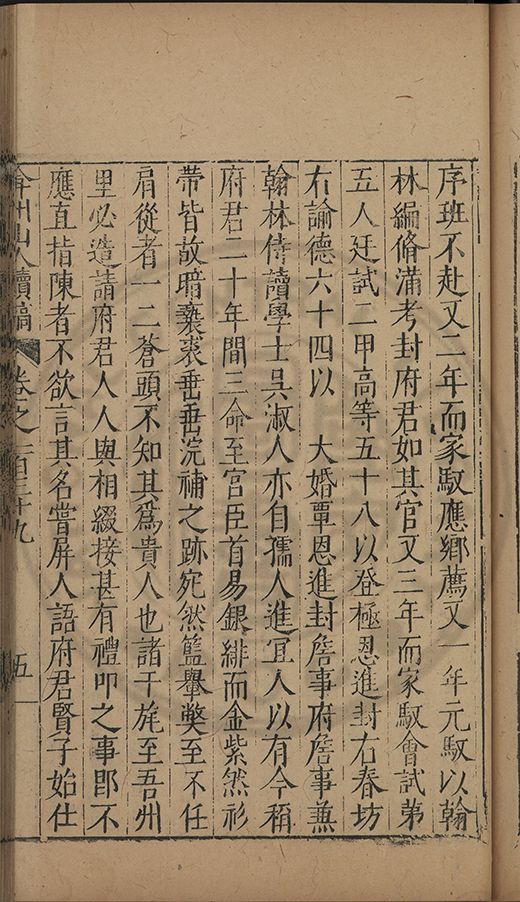 序班不赴又二年而家馭應鄉薦又一年元馭以翰
林編脩滿考封府君如其官又三年而家馭會試第
五人廷試二甲高等五十八以登極恩進封右春坊
右諭德六十四以　大婚覃恩進封詹事府詹事兼
翰林侍讀學士吳淑人亦自孺人進宜人以有今稱
府君二十年間三命至宮臣首易銀緋而金紫然衫
帶皆故暗藝裘垂垂浣補之跡宛然籃舉獘至不任
肩從者一二蒼頭不知其爲貴人也諸干旄至吾州
里必造請府君人人與相綴接甚有禮叩之事卽不
應直指陳者不欲言其名嘗屏人語府君賢子始仕
弇州山人續稿　卷之一百三十九　五